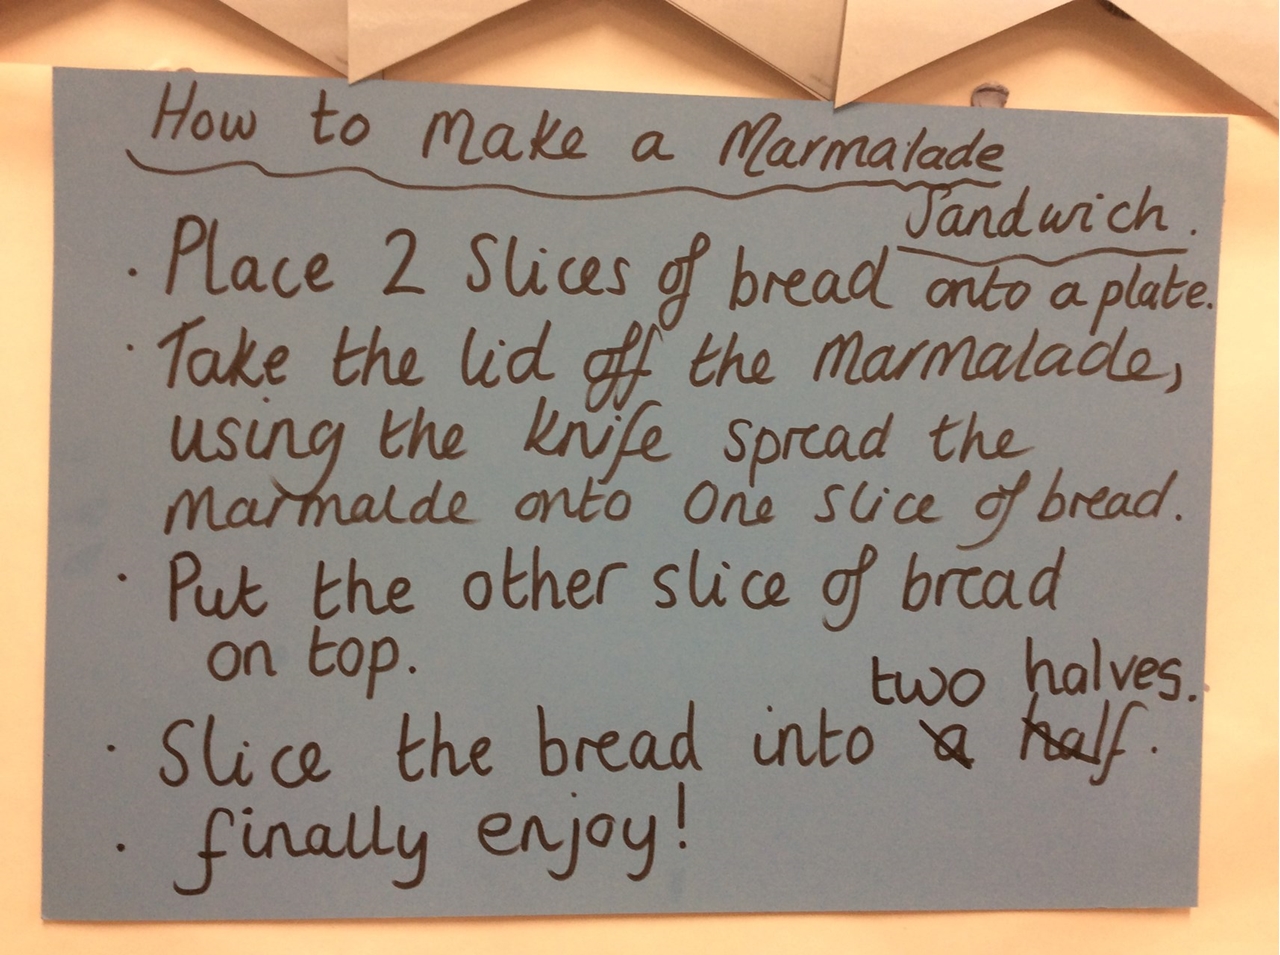 How to Make a Marmalade
Sandwich.
· Place 2 Slices of bread onto a plate.
· Take the lid off the Marmalade,
using the knife spread the
Marmalde onto One slice of bread.
· Put the other slice of bread
on top.
two halves.
· Slice the bread into a half.
· finally enjoy!